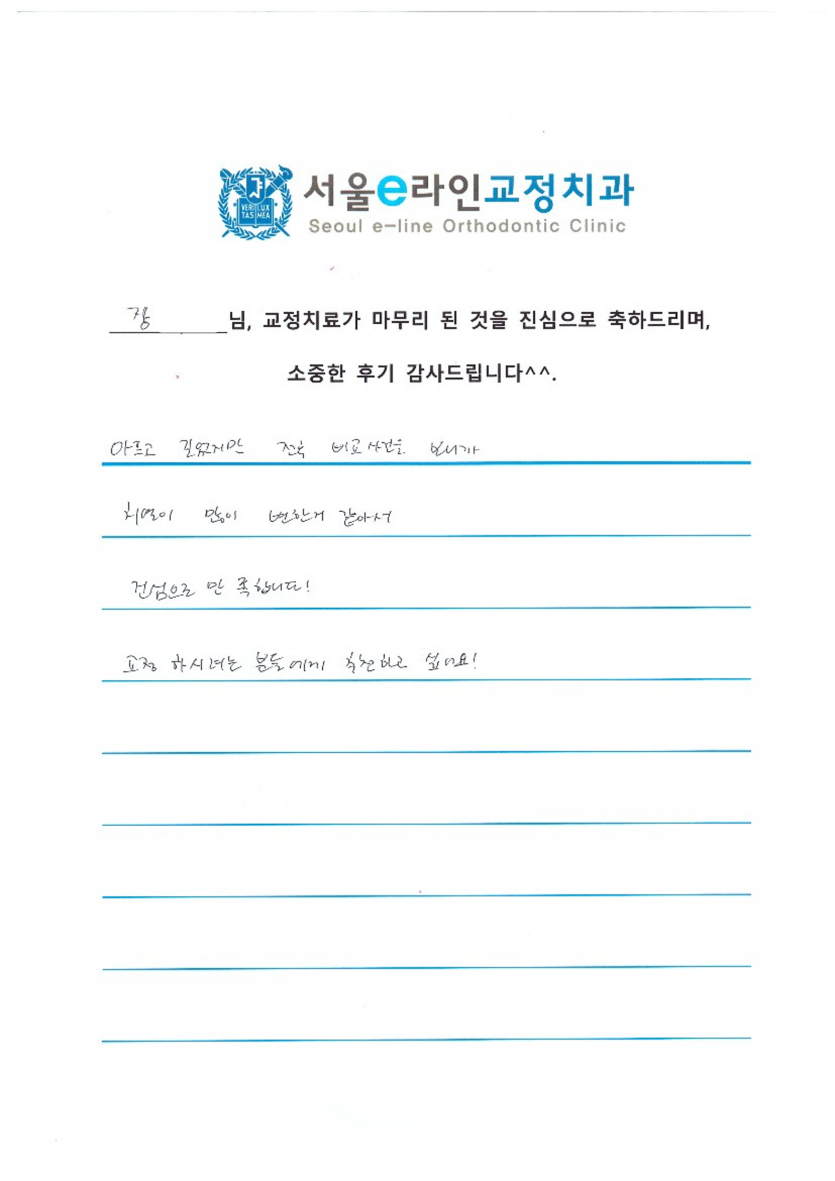 VERI LUX
TAS MEA
서울e라인교정치과
Seoul e-line Orthodontic Clinic
장 님, 교정치료가 마무리 된 것을 진심으로 축하드리며,
소중한 후기 감사드립니다^^.
아프고 길었지만 전후 비교사진을 보니까
치열이 많이 변한거 같아서
진심으로 만족합니다!
교정 하시려는 분들에게 추천하고 싶어요!